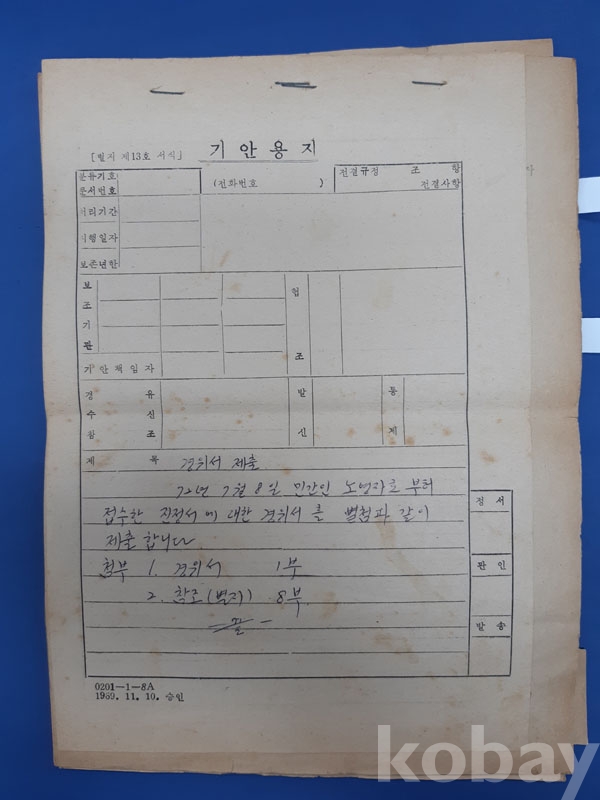 [별지 제13호 서식] 기안용지
분류기호
문서번호
(전화번호 )
전결규정 조 항
전결사항
처리기간
시행일자
보존년한
보조기관
협조
기안책임자
경유
수신
참조
발신
통제
제목 경위서 제출
72년 7월 8일 민간인 노영자로부터
접수한 진정서에 대한 경위서를 별첨과 같이
제출합니다
첨부 1. 경위서 1부
2. 참조(별지) 8부.
끝 -
정서
관인
발송
0201-1-8A
1969. 11. 10. 승인
kobay